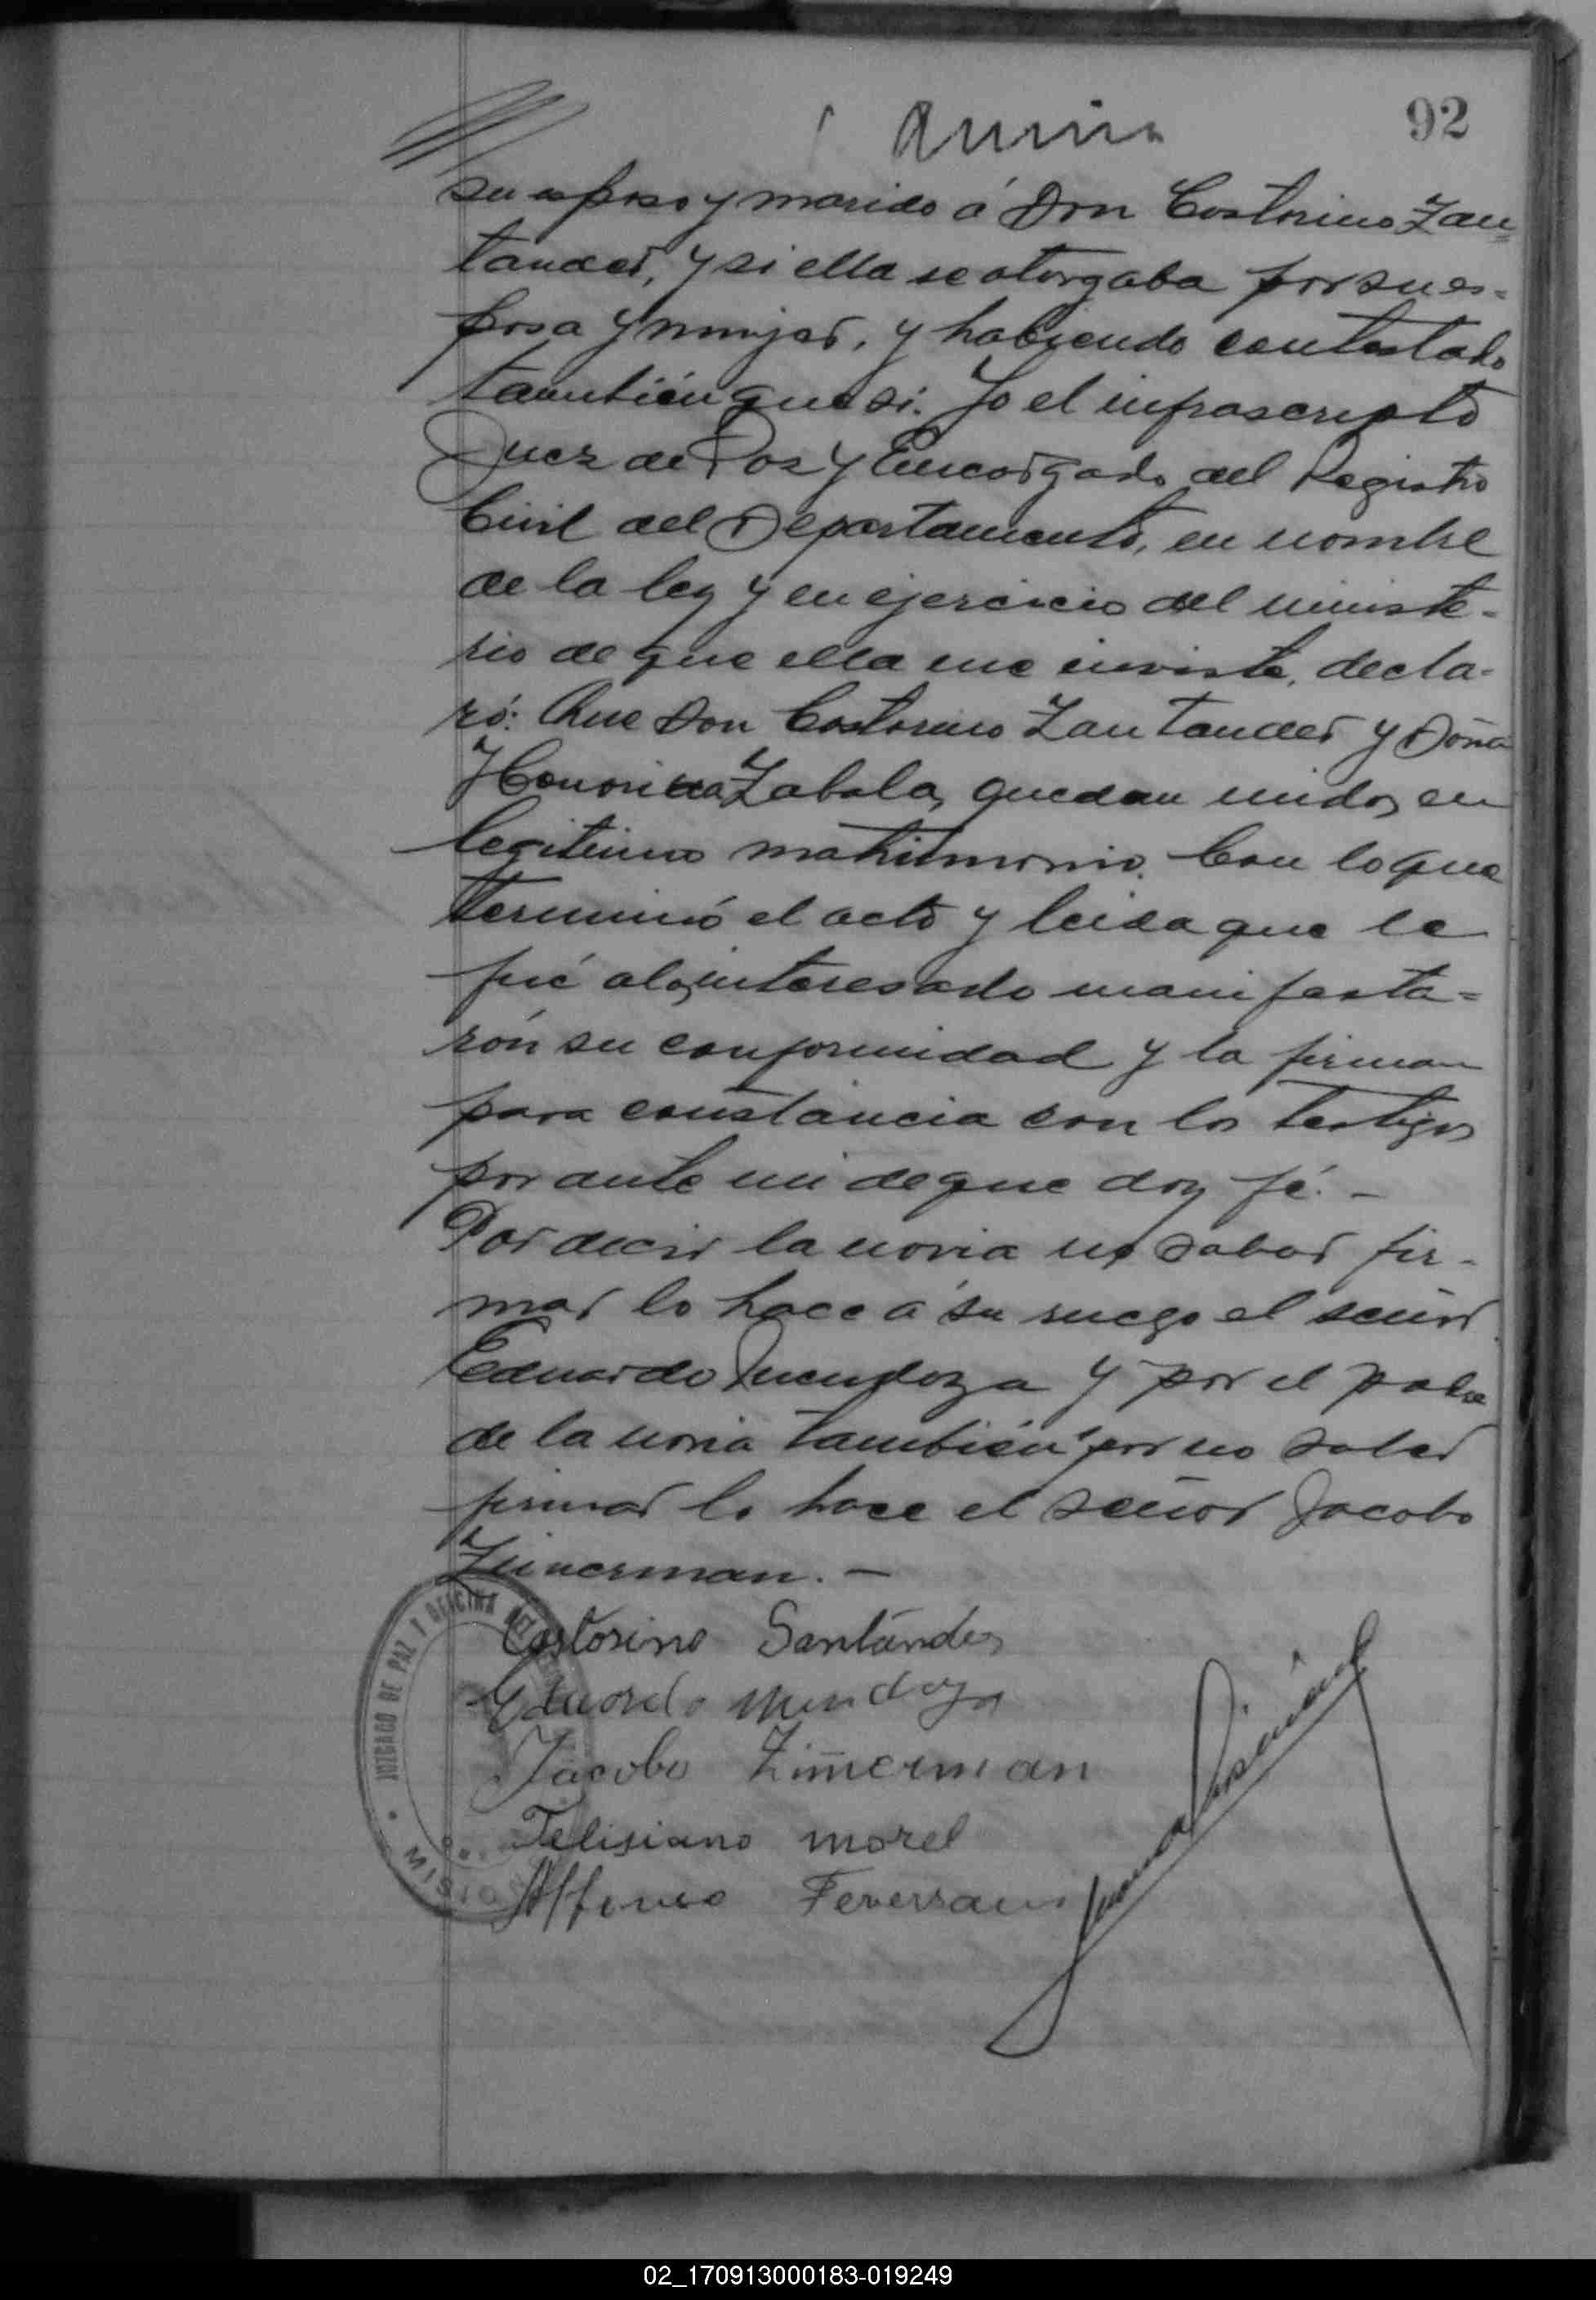 92
su esposo y marido á Don Castorino Zan=
tander, y si ella se otorgaba por su es-
posa y mujer, y habiendo contestado
también que si. Yo el infrascripto
Juez de Paz y Encargado del Registro
Civil del Departamento, en nombre
de la ley y en ejercicio del ministe-
rio de que ella me inviste, decla-
ró: Que Don Castorino Zantander y Doña
Honorina Zabala, quedan unidos en
legitimo matrimonio. Con lo que
terminó el acto y leida que le
fué a los interesado manifesta=
rón su conformidad y la firman
para constancia con los testigos
por ante mi de que doy fé. –
Por decir la novia no saber fir-
mar lo hace á su ruego el señor
Eduardo Mendoza y por el padre
de la novia también por no saber
firmar lo hace el señor Jacobo
Zimerman. –
Castorino Santánder
Eduardo Mendoza
Jacobo Zimmerman
Felisiano Morel
Alfonso
JUZGADO DE PAZ Y OFICINA DEL
MISIONES
02_170913000183-019249